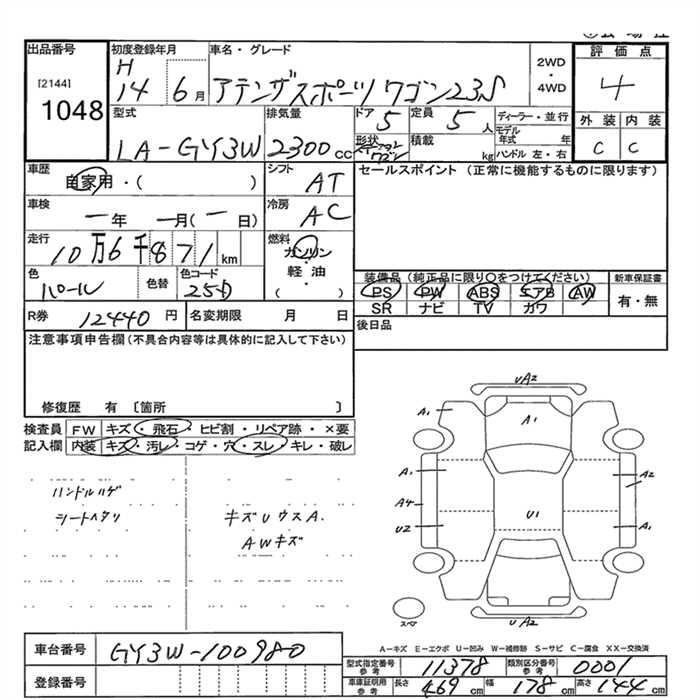 出品番号
[2144]
1048
初度登録年月
H
14年 6月
車名・グレード
アテンザスポーツ ワゴン23S
2WD
・
4WD
評価点
4
外装 内装
C C
型式
LA-GY3W
排気量
2300 cc
ドア
5
形状
ステーションワゴン
定員
5 人
積載
kg
ディーラー・並行
モデル年式 年
ハンドル 左・右
車歴
自家用・( )
シフト
AT
車検
一年 一月(一日)
冷房
AC
走行
10万6千871km
燃料
ガソリン
軽油
( )
色
パール
色替
色コード
25D
R券 12440円
名変期限 月 日
セールスポイント (正常に機能するものに限ります)
装備品(純正品に限り○をつけてください)
PS PW ABS エアB AW
SR ナビ TV カワ
新車保証書
有・無
後日品
注意事項申告欄(不具合内容等は具体的に記入して下さい)
修復歴 有 〔箇所 〕
検査員記入欄
FW キズ・飛石・ヒビ割・リペア跡・×要
内装 キズ・汚レ・コゲ・穴・スレ・キレ・破レ
ハンドルハゲ
シートヘタリ
キズUウスA.
AWキズ
UA2
A1
A1
A1
A2
A4
U1
U2
A1
UA2
スペア
A-キズ E-エクボ U-凹み W-補修跡 S-サビ C-腐食 XX-交換済
車台番号 GY3W-100980
登録番号
型式指定番号 参考 11378
類別区分番号 参考 0001
車庫証明用 参考 長さ 469cm 幅 178cm 高さ 144cm